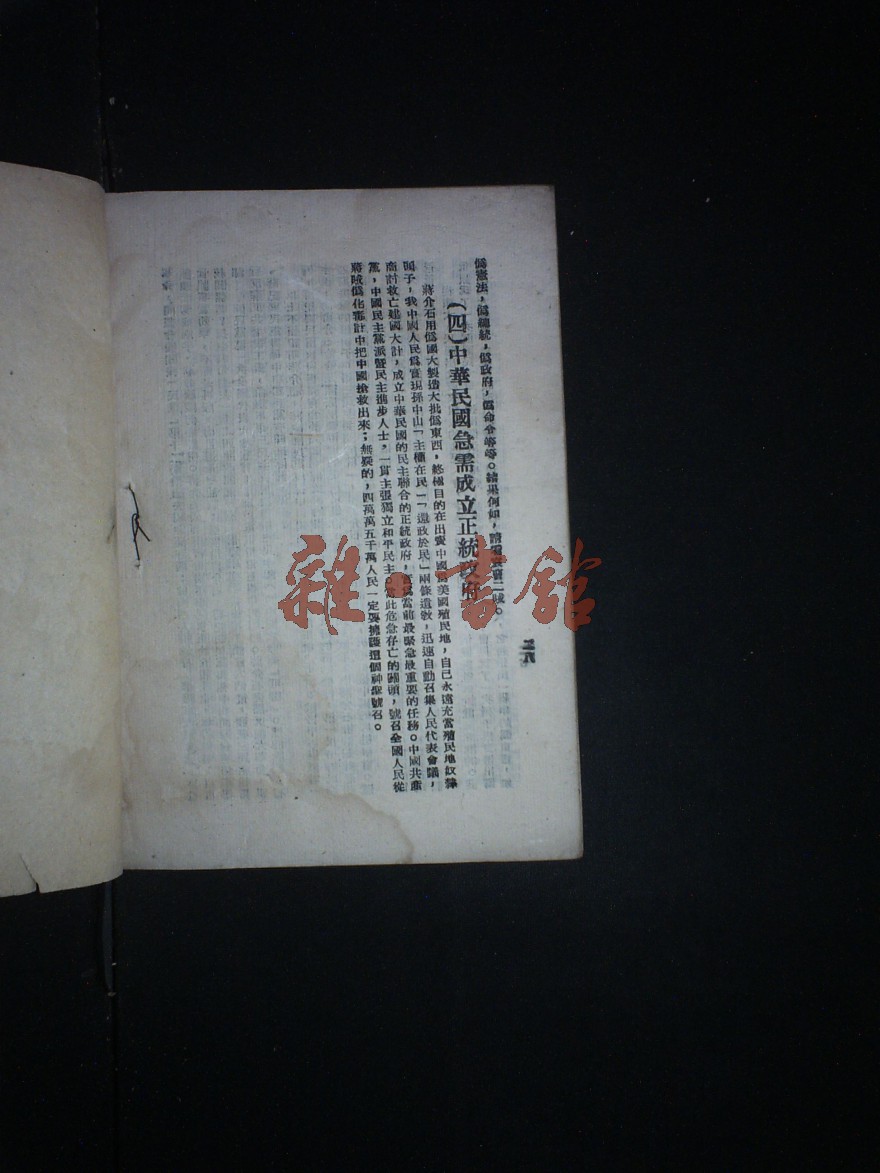 僞憲法，僞總統，僞政府，僞命令等等。結果何如，請
（四）中華民國急需成立正統政府
蔣介石用僞國大製造大批僞東西，終極目的在出賣中國爲美國殖民地，自己永遠充當殖民地奴隸
頭子，我中國人民爲實現孫中山「主權在民」「還政於民」兩條遺敎，迅速自動召集人民代表會議，
商討救亡建國大計，成立中華民國的民主聯合的正統政府，實爲當前最緊急最重要的任務。中國共產
黨，中國民主黨派暨民主進步人士，一貫主張獨立和平民主。當此危急存亡的關頭，號召全國人民從
蔣賊僞化毒計中把中國搶救出來；無疑的，四萬萬五千萬人民一定要擁護這個神聖號召。
雜·書館